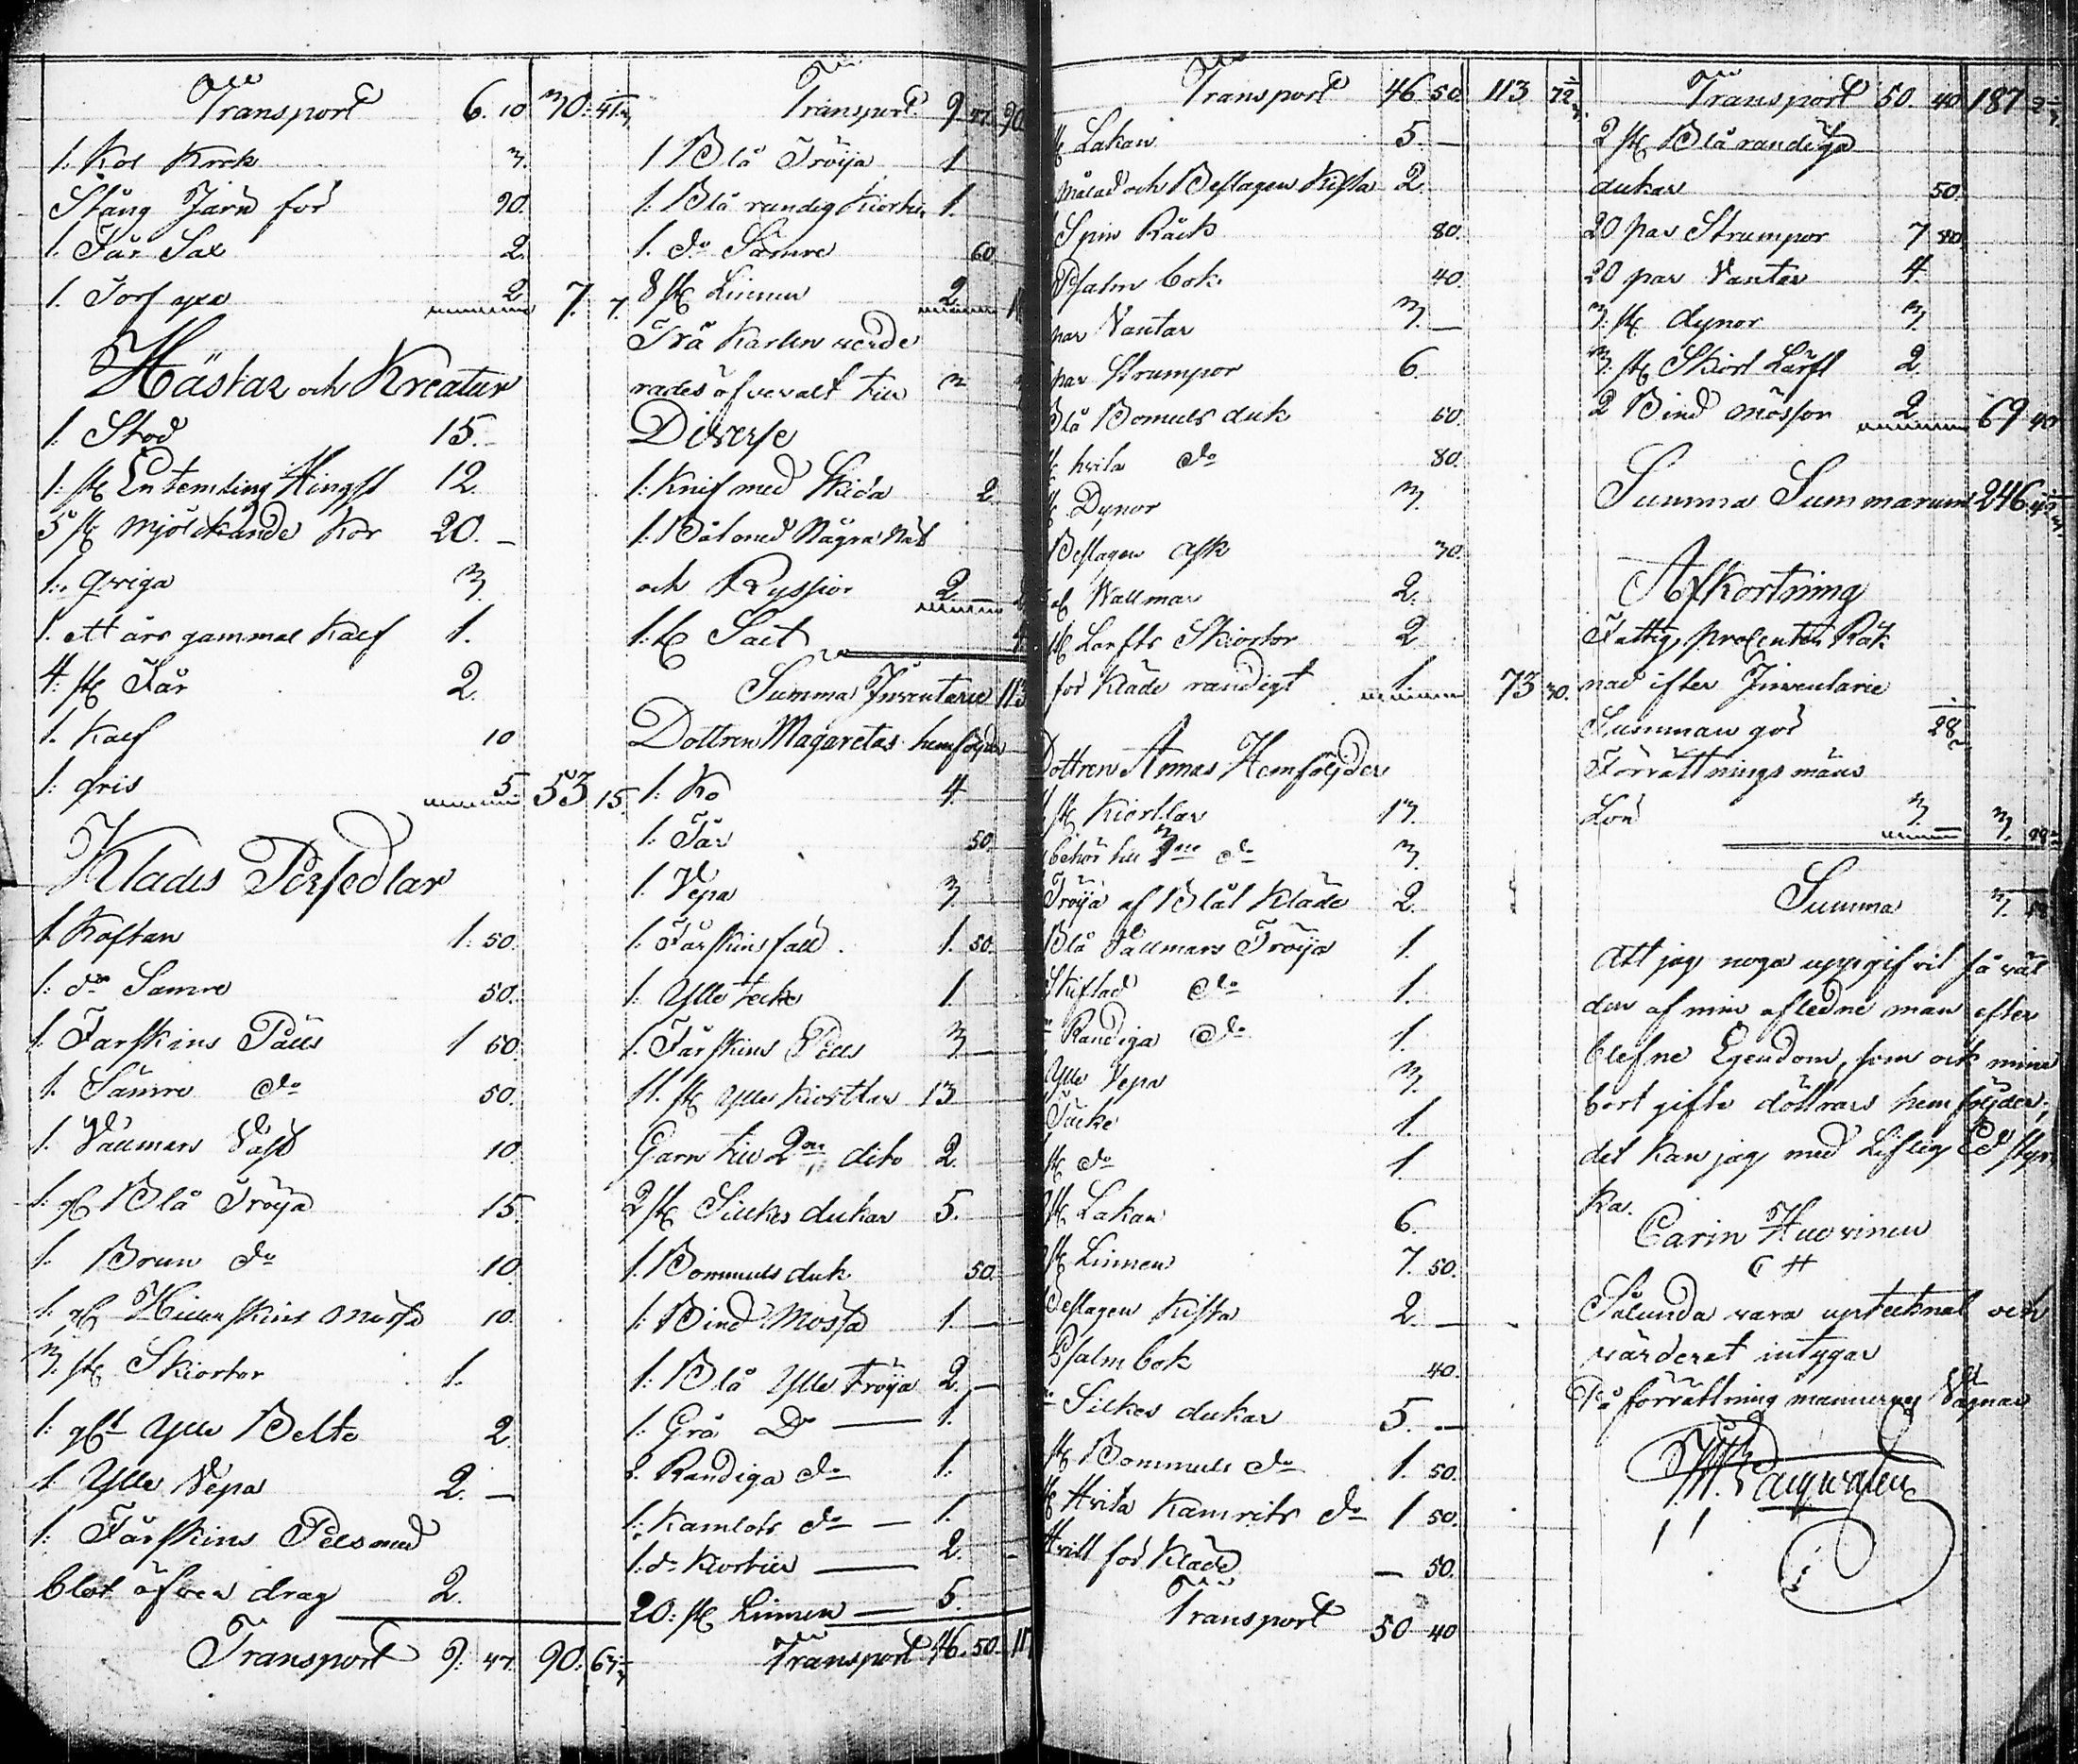 Transport 6. 10 30. 41
1. Kol Krok 3.
Stång Järn för 90.
1. Får Sax 2.
1. Torf yxa 2 7. 7.
Hästar och Kreatur
1. Stod 15. -
1. st En temling Hingst 12.
5 st mjölckande Kor 20. -
1. qviga 3
1. ett års gammal Kalf 1.
4. st Får 2.
1. Kalf 10
1. gris 5. 53 15.
Klädes Persedlar
1. Kaftan 1. 50.
1. do Sämre 50.
1. Fårskins Päls 1 60.
1. Sämre do 50.
1. Vallmans Väst 10.
1. gl Blå Tröija 15.
1. Brun do 10
1. gl skins mössa 10.
3. st Skiortor 1.
1. glt Ylle Belte 2.
1. Ylle Vepa 2. -
1. Fårskins Pels med
blot öfver drag 2.
Transport 9. 47. 90. 63
Transport 9 47. 90.
1 Blå Tröija 1
1. Blå randig Kiortel 1.
1. do Sämre 60.
8 st Linnen 2.
Frå Karlen verde
rades öfveralt till 3
Diverse
1. Knif med Skida 2.
1. Båt med Några Nät
och Ryssior 2
1. Salt
Summa Inventarie 113
Dottren Magaretas hemföljder
1. Ko 4.
1. Får 50.
1. Vepa 3
1. Fårskinsfäll 1. 50.
1. Ylle teche 1
1. Fårskins Pels 3 -
11. st Ylle Kiortlar 13
Garn till 2ne dito 2.
2 st Silckes dukar 5.
1. Bommuls duk 50.
1. Bind Mössa 1. -
1. Blå Ylle tröija 2. -
1. Grå Do - 1.
2. Randiga do 1.
1. Kamlots do - 1.
1. do Kiortel - 2. -
20. st Linnen - 5.
Transport 46. 50. 11
Transport 46. 50. 113 72
st Lakan 5. -
målad och Beslagen Kista 2.
Spin Råck 80.
Psalm bok 40.
par Vantar 3. -
par Strumpor 6.
Blå Bomuls duk 60.
st hvita do 80.
st Dynor 3.
Beslagen ask 30.
al Wallmar 2.
st Lerfts Skiortor 2
för Kläde randigt 1. 73 30.
Dottren Annas Hemföljder
st Kiortlar 13.
behör till 3ne do 3.
Tröija af Blåt Kläde 2.
Blå Vallmars Tröija 1.
Skiftad do 1.
Randiga do 1.
Ylle Vepa 3.
Täcke 1.
st do 1
st Lakan 6.
st Linnen 7. 50.
Beslagen Kista 2. -
Psalm bok 40.
Silkes dukar 5. -
st Bommuls do 1. 50.
st Hvita Kamrits do 1 50.
Hvitt för Kläde - 50.
Transport 50 40
Transport 50. 40. 187 2
2 st Blå randiga
dukar 50.
20 par Strumpor 7 80
20 par Vantar 4.
3. st dynor 3
3. st Skiort Lärft 2.
2 Bind mössor 2 69 40
Summa Summarum 246. 42
Afkortning
Fattig procenten Räk
nad efter Inventarie
Summan gör 28
Förrättnings mäns
Lön 3. 3. 28
Summa 3.
Att jag noga uppgifvit så väl
den af min afledne man efter
blefne Egendom, som ock mina
bort gifte döttrars hemföljder,
det kan jag med Liflig Ed styr
ka.
Carin Huovinen
C H
Sålunda vara upteknat och
värderat intygar
På förrättning mannernes Vägnar